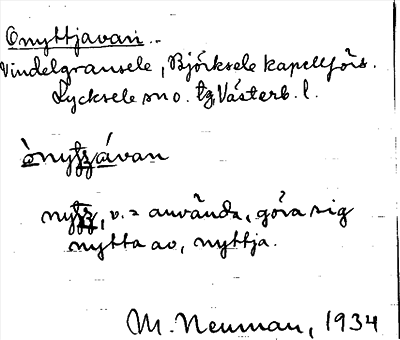 Onyttjavan..
Vindelgransele, Björksele kapellförs.
Lycksele sn o. tg, Västerb. l.
ònytzávan
nytz, v. = använda, göra sig
nytta av, nyttja.
M. Neuman, 1934